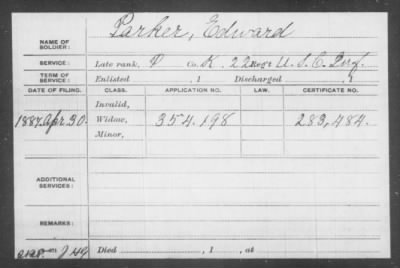 NAME OF SOLDIER: Parker, Edward
SERVICE: Late rank, P Co. K, 22 Reg't U. S. C. Inf.
TERM OF SERVICE: Enlisted , 1 Discharged , 1
DATE OF FILING. CLASS. APPLICATION NO. LAW. CERTIFICATE NO.
Invalid,
1887, Apr. 30. Widow, 354.198 283,484.
Minor,
ADDITIONAL SERVICES:
REMARKS:
Died , 1 , at